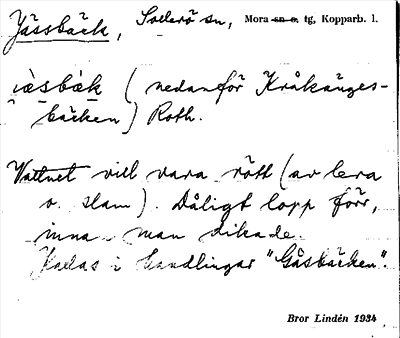 Jässbäck, Sollerö sn, Mora sn o. tg, Kopparb. l.
(nedanför Kråkänges-
bäcken) Roth.
Vattnet vill vara rött (av lera
o. slam). Dåligt lopp förr,
inna man dikade.
Kallas i handlingar "Gåsbäcken".
Bror Lindén 1934